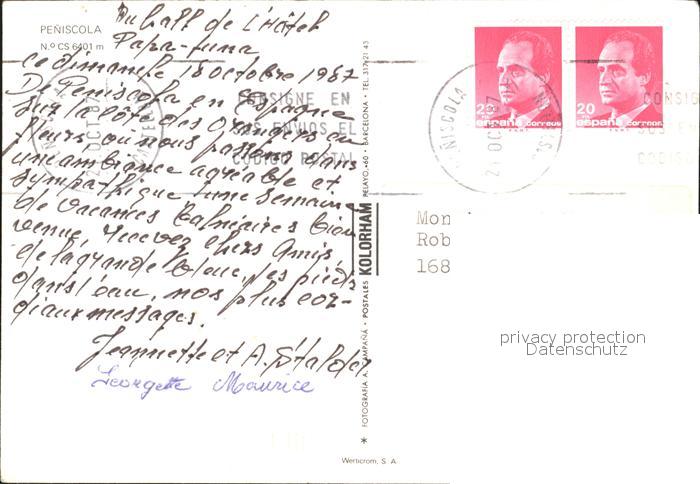 PEÑISCOLA
N.º CS 6401 m
Au hall de l'Hôtel
Papa-Luna
ce dimanche 18 octobre 1987
De Peniscola en Espagne
sur la côte des Orangers en
fleurs où nous passons dans
une ambiance agréable et
sympathique une semaine
de vacances balnéaires bien
venue, recevez chers Amis,
de la grande bleue, les pieds
dans l'eau, nos plus cor-
diaux messages.
Jeannette et A. Stalder
Georgette Maurice
FOTOGRAFIA A. CAMPAÑÁ - POSTALES KOLORHAM PELAYO, 60 - BARCELONA - Tel. 317 21 43
Werticrom, S. A.
CONSIGNE EN
SUS ENVIOS EL
CODIGO POSTAL
PEÑISCOLA
21 OCT 87
20
españa correos
FNMT
20
españa correos
FNMT
CONSIG
SUS EN
CODIG
Mon
Rob
168
privacy protection
Datenschutz